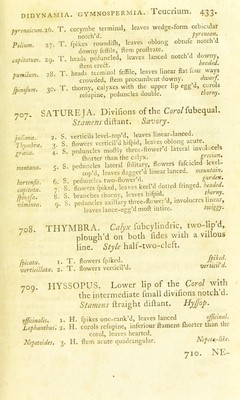 DIDYNAMIA. GYMNOSPERMIA. Teucrium. 433.
pyrenaicum. 26. T. corymbe terminal, leaves wedge-form orbicular
notch'd. pyrenean.
Polium. 27. T. spikes roundish, leaves oblong obtuse notch'd
downy sessile, stem prostrate.
capitatum. 29. T. heads peduncled, leaves lanced notch'd downy,
stem erect. headed.
pumilum. 28. T. heads terminal sessile, leaves linear flat four ways
crowded, stem procumbent downy. dwarf.
spinosum. 30. T. thorny, calyxes with the upper lip egg'd, corols
resupine, peduncles double. thorny.
707. SATUREJA. Divisions of the Corol subequal.
Stamens distant. Savory.
juliana. 2. S. verticils level-top'd, leaves linear-lanced.
Thymbra. 3. S. flowers verticil'd hispid, leaves oblong acute.
græca. 4. S. peduncles mostly three-flower'd lateral involucels
shorter than the calyx. grecian.
montana. 5. S. peduncles lateral solitary, flowers fascicled level-
top'd, leaves dagger'd linear lanced. mountain.
hortensis. 6. S. peduncles two-flower'd. garden.
capitata. 7. S. flowers spiked, leaves keel'd dotted fringed. headed.
spinosa. 8. S. branches thorny, leaves hispid. thorny.
viminea. 9. S. peduncles axillary three-flower'd, involucres linear,
leaves lance-egg'd most intire. twiggy.
708. THYMBRA. Calyx subcylindric, two-lip'd,
plough'd on both sides with a villous
line. Style half-two-cleft.
spicata. 1. T. flowers spiked. spiked.
verticillata. 2. T. flowers verticil'd. verticil'd.
709. HYSSOPUS. Lower lip of the Corol with
the intermediate small divisions notch'd.
Stamens straight distant. Hyssop.
officinalis. 1. H. spikes one-rank'd, leaves lanced officinal.
Lophanthus. 2. H. corols resupine, inferiour stamens shorter than the
corol, leaves hearted.
Nepetoides. 3. H. stem acute quadrangular. Nepeta-like.
710. NE-